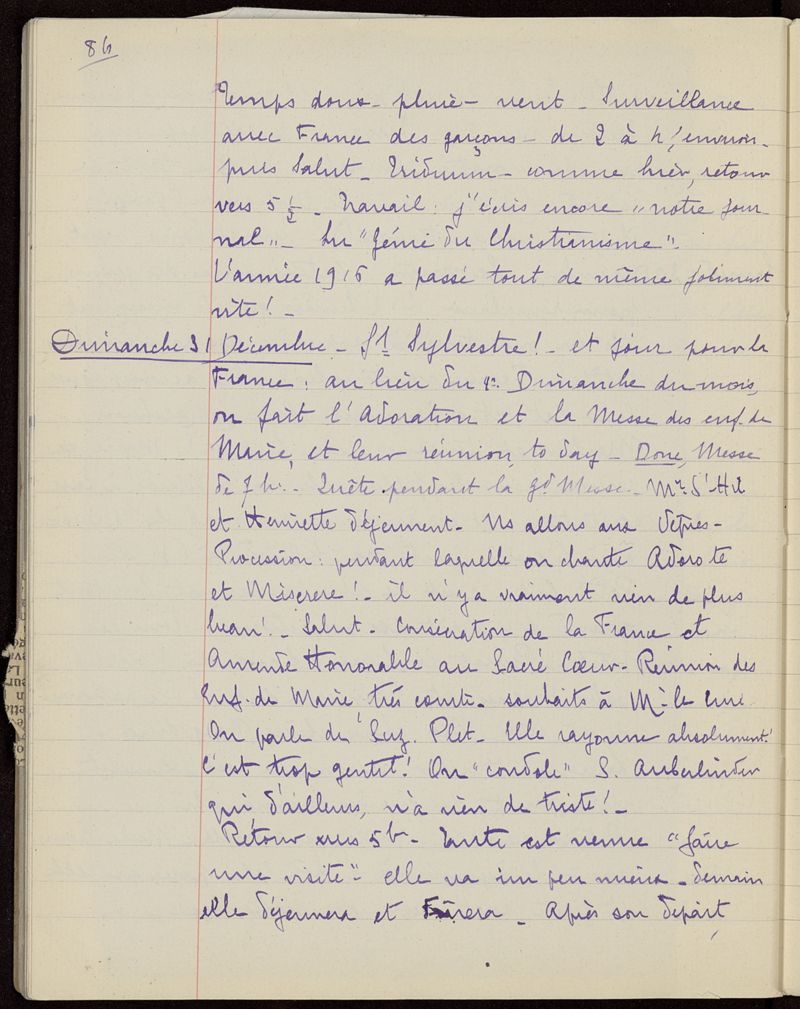 84
Temps doux - pluie - vent - Surveillance
avec France des garçons - de 2 à 4h environ -
puis Salut - Triduum - comme hier, retour
vers 5 1/2 - Travail : j'écris encore "notre jour
nal" - Lu "Génie du Christianisme".
L'année 1916 a passé tout de même joliment
vite ! -
Dimanche 31 Décembre - St Sylvestre ! - et jour pour la
France : au lieu du 1er Dimanche du mois,
on fait l'Adoration et la Messe des enf. de
Marie, et leur réunion, to day - Donc, Messe
de 7h. - Quête pendant la gd Messe - Mr St
et Henriette déjeunent - Ns allons aux Vêpres -
Procession : pendant laquelle on chante Adoro te
et Miserere ! - il n'y a vraiment rien de plus
beau ! - Salut - Consécration de la France et
Amende Honorable au Sacré Cœur - Réunion des
Enf. de Marie très courte - souhaits à Mr le Curé
On parle de Suz. Plet - Elle rayonne absolument !
C'est trop gentil ! On "condole" S.
qui, d'ailleurs, n'a rien de triste ! -
Retour vers 5h - Tante est venue "faire
une visite" - elle va un peu mieux - demain
elle déjeunera et - Après son départ,